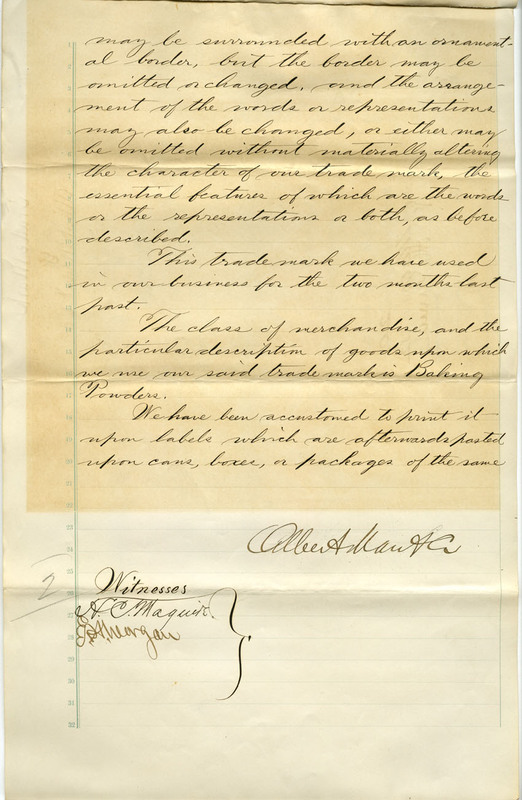 may be surrounded with an ornament-
al border, but the border may be
omitted or changed, and the arrange-
ment of the words or representations
may also be changed, or either may
be omitted without materially altering
the character of our trade mark, the
essential features of which are the words
or the representations or both, as before
described.
This trade mark we have used
in our business for the two months last
past.
The class of merchandise, and the
particular description of goods upon which
we use our said trade mark is Baking
Powders.
We have been accustomed to print it
upon labels which are afterwards pasted
upon cans, boxes, or packages of the same
Albert Mau & Co
2
Witnesses
A. C. Maguire.
E. H. Morgan